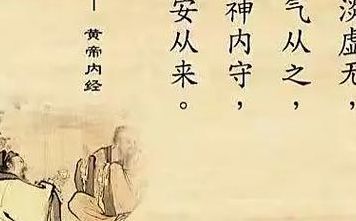 淡虚无，
气从之，
神内守，
安从来。
—黄帝内经